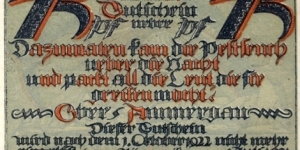 75 Gutschein 75
Pf ueber Pf
Dazumalen kam die Pestseuch
ueber die Nacht
und packt all die Leut die sie
drecken mocht.
Ober-Ammergau
Dieser Gutschein
wird nach dem 1. Oktober 1922 nicht mehr